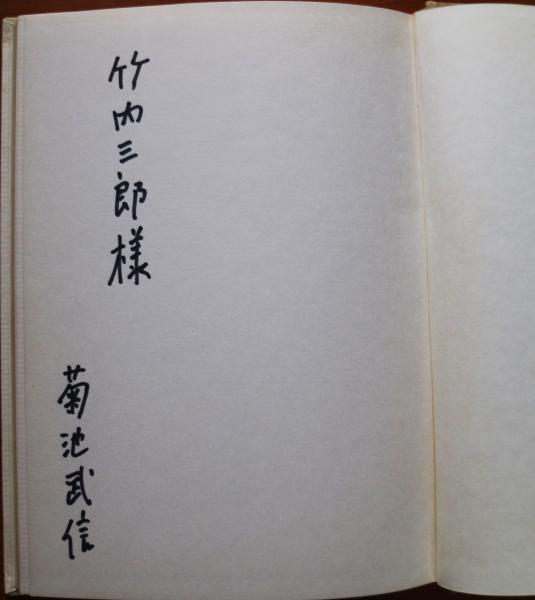 竹内三郎様
菊池武信